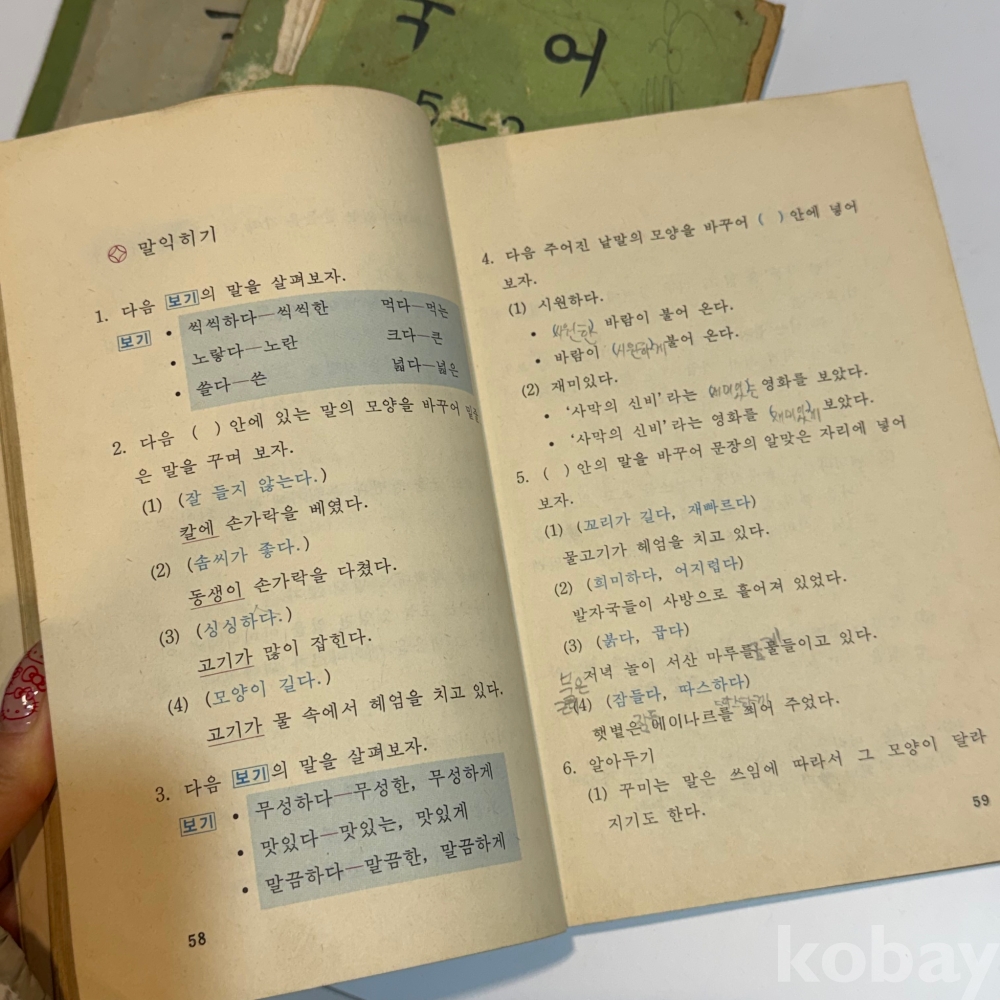 국어
5-2
말익히기
1. 다음 보기의 말을 살펴보자.
보기 • 씩씩하다—씩씩한 먹다—먹는
• 노랗다—노란 크다—큰
• 쓸다—쓴 넓다—넓은
2. 다음 ( ) 안에 있는 말의 모양을 바꾸어 밑줄
은 말을 꾸며 보자.
(1) (잘 들지 않는다.)
칼에 손가락을 베였다.
(2) (솜씨가 좋다.)
동생이 손가락을 다쳤다.
(3) (싱싱하다.)
고기가 많이 잡힌다.
(4) (모양이 길다.)
고기가 물 속에서 헤엄을 치고 있다.
3. 다음 보기의 말을 살펴보자.
보기 • 무성하다—무성한, 무성하게
• 맛있다—맛있는, 맛있게
• 말끔하다—말끔한, 말끔하게
58
4. 다음 주어진 낱말의 모양을 바꾸어 ( ) 안에 넣어
보자.
(1) 시원하다.
• 시원한 바람이 불어 온다.
• 바람이 (시원하게) 불어 온다.
(2) 재미있다.
• ‘사막의 신비’라는 재미있는 영화를 보았다.
• ‘사막의 신비’라는 영화를 (재미있게) 보았다.
5. ( ) 안의 말을 바꾸어 문장의 알맞은 자리에 넣어
보자.
(1) (꼬리가 길다, 재빠르다)
물고기가 헤엄을 치고 있다.
(2) (희미하다, 어지럽다)
발자국들이 사방으로 흩어져 있었다.
(3) (붉다, 곱다)
저녁 놀이 서산 마루를 물들이고 있다.
(4) (잠들다, 따스하다)
햇볕은 메이나르를 쬐어 주었다.
6. 알아두기
(1) 꾸미는 말은 쓰임에 따라서 그 모양이 달라
지기도 한다.
59
kobay